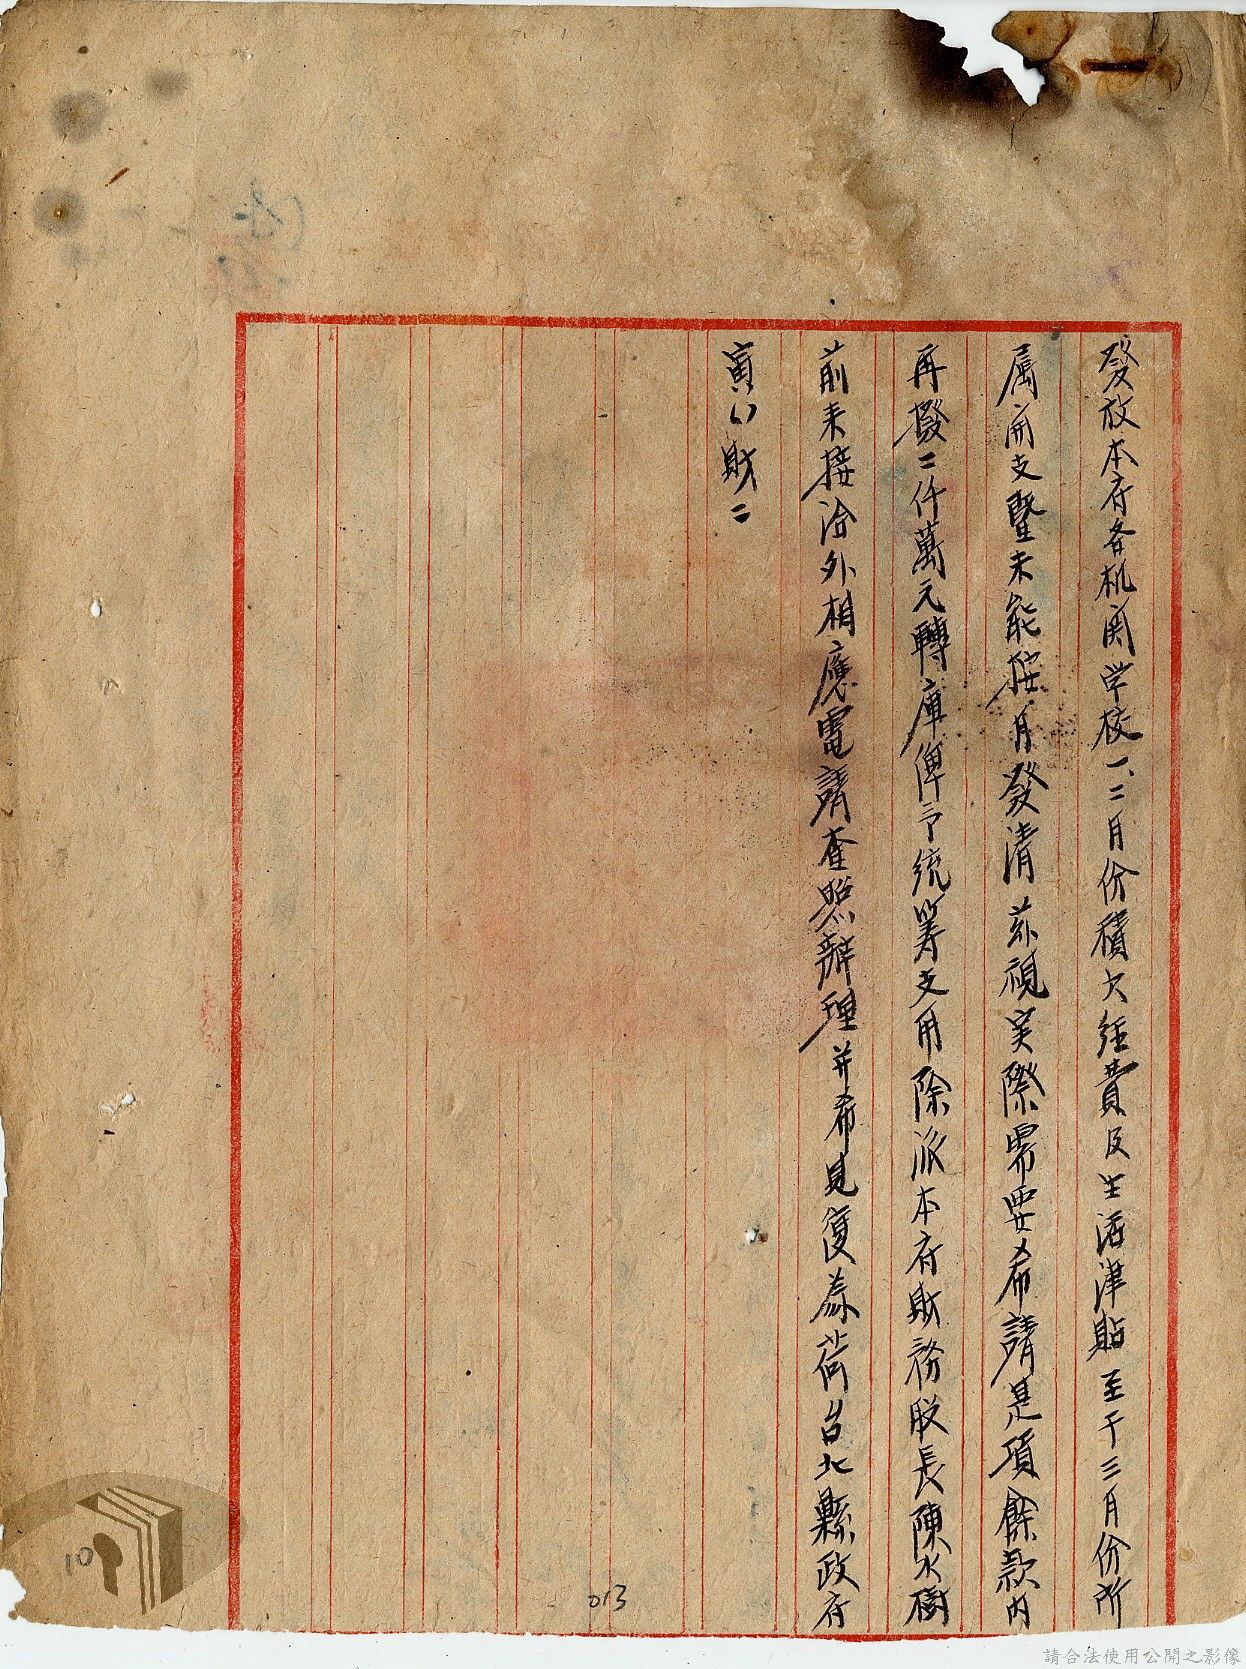 發放本府各机関学校一、二月份積欠経費及生活津貼至于三月份所
属開支暨未能按月發清茲視実際需要希請是項餘款内
再撥二仟萬元轉庫俾予統籌支用除派本府財務股長陳水樹
前来接洽外相應電請查照辦理并希見復為荷台北縣政府
寅 財二
013
10
請合法使用公開之影像